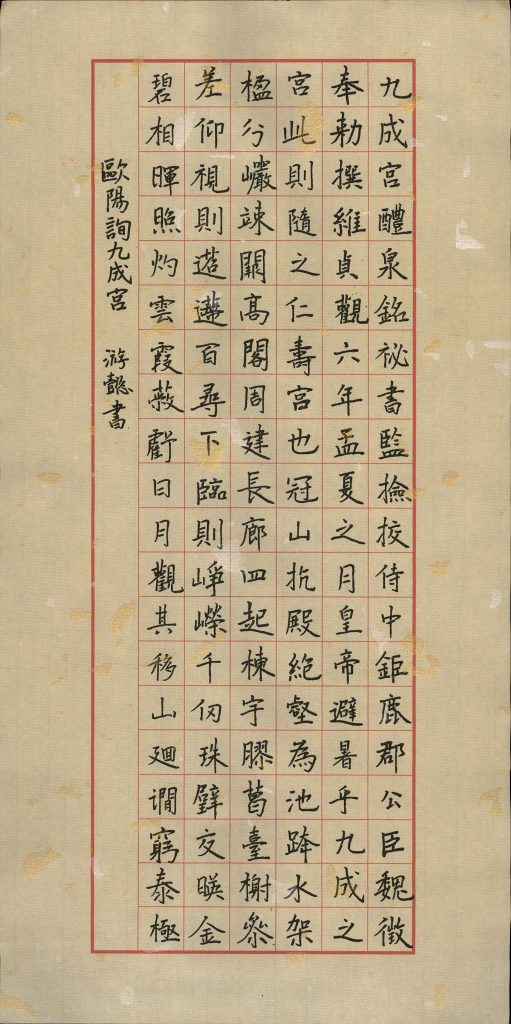 九成宮醴泉銘祕書監撿挍侍中鉅鹿郡公臣魏徵
奉勑撰維貞觀六年孟夏之月皇帝避暑乎九成之
宮此則隨之仁壽宮也冠山抗殿絶壑為池跨水架
楹分巗竦闕高閣周建長廊四起棟宇膠葛臺榭參
差仰視則迢遰百尋下臨則崢嶸千仞珠璧交暎金
碧相暉照灼雲霞蔽虧日月觀其移山廻澗窮泰極
歐陽詢九成宮 游懿書